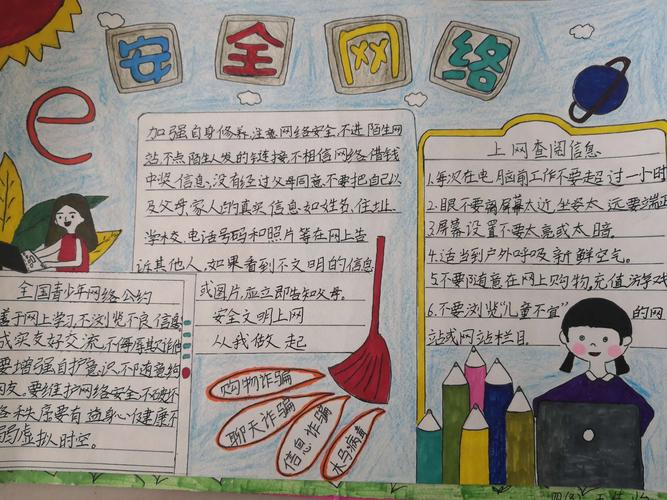 安全网络
e
加强自身修养,注意网络安全,不进陌生网
站,不点陌生人发的链接,不相信网络借钱
中奖信息,没有经过父母同意,不要把自己以
及父母、家人的真实信息如姓名、住址、
学校、电话号码和照片等在网上告
诉其他人,如果看到不文明的信息
或图片,应立即告知父母。
安全文明上网
从我做起
上网查阅信息
1.每次在电脑前工作不要超过一小时
2.眼不要离屏幕太近,坐姿太远要端正
3.屏幕设置不要太亮或太暗.
4.适当到户外呼及新鲜空气。
5.不要随意在网上购物,充值游戏
6.不要浏览“儿童不宜”的网
站或网站栏目.
全国青少年网络公约
善于网上学习,不浏览不良信息
诚实友好交流,不侮辱欺诈他
要增强自护意识,不随意约
网友。要维护网络安全,不破坏
各秩序要有益身心健康不
溺虚拟时空。
购物诈骗
聊天诈骗
信息诈骗
木马病毒